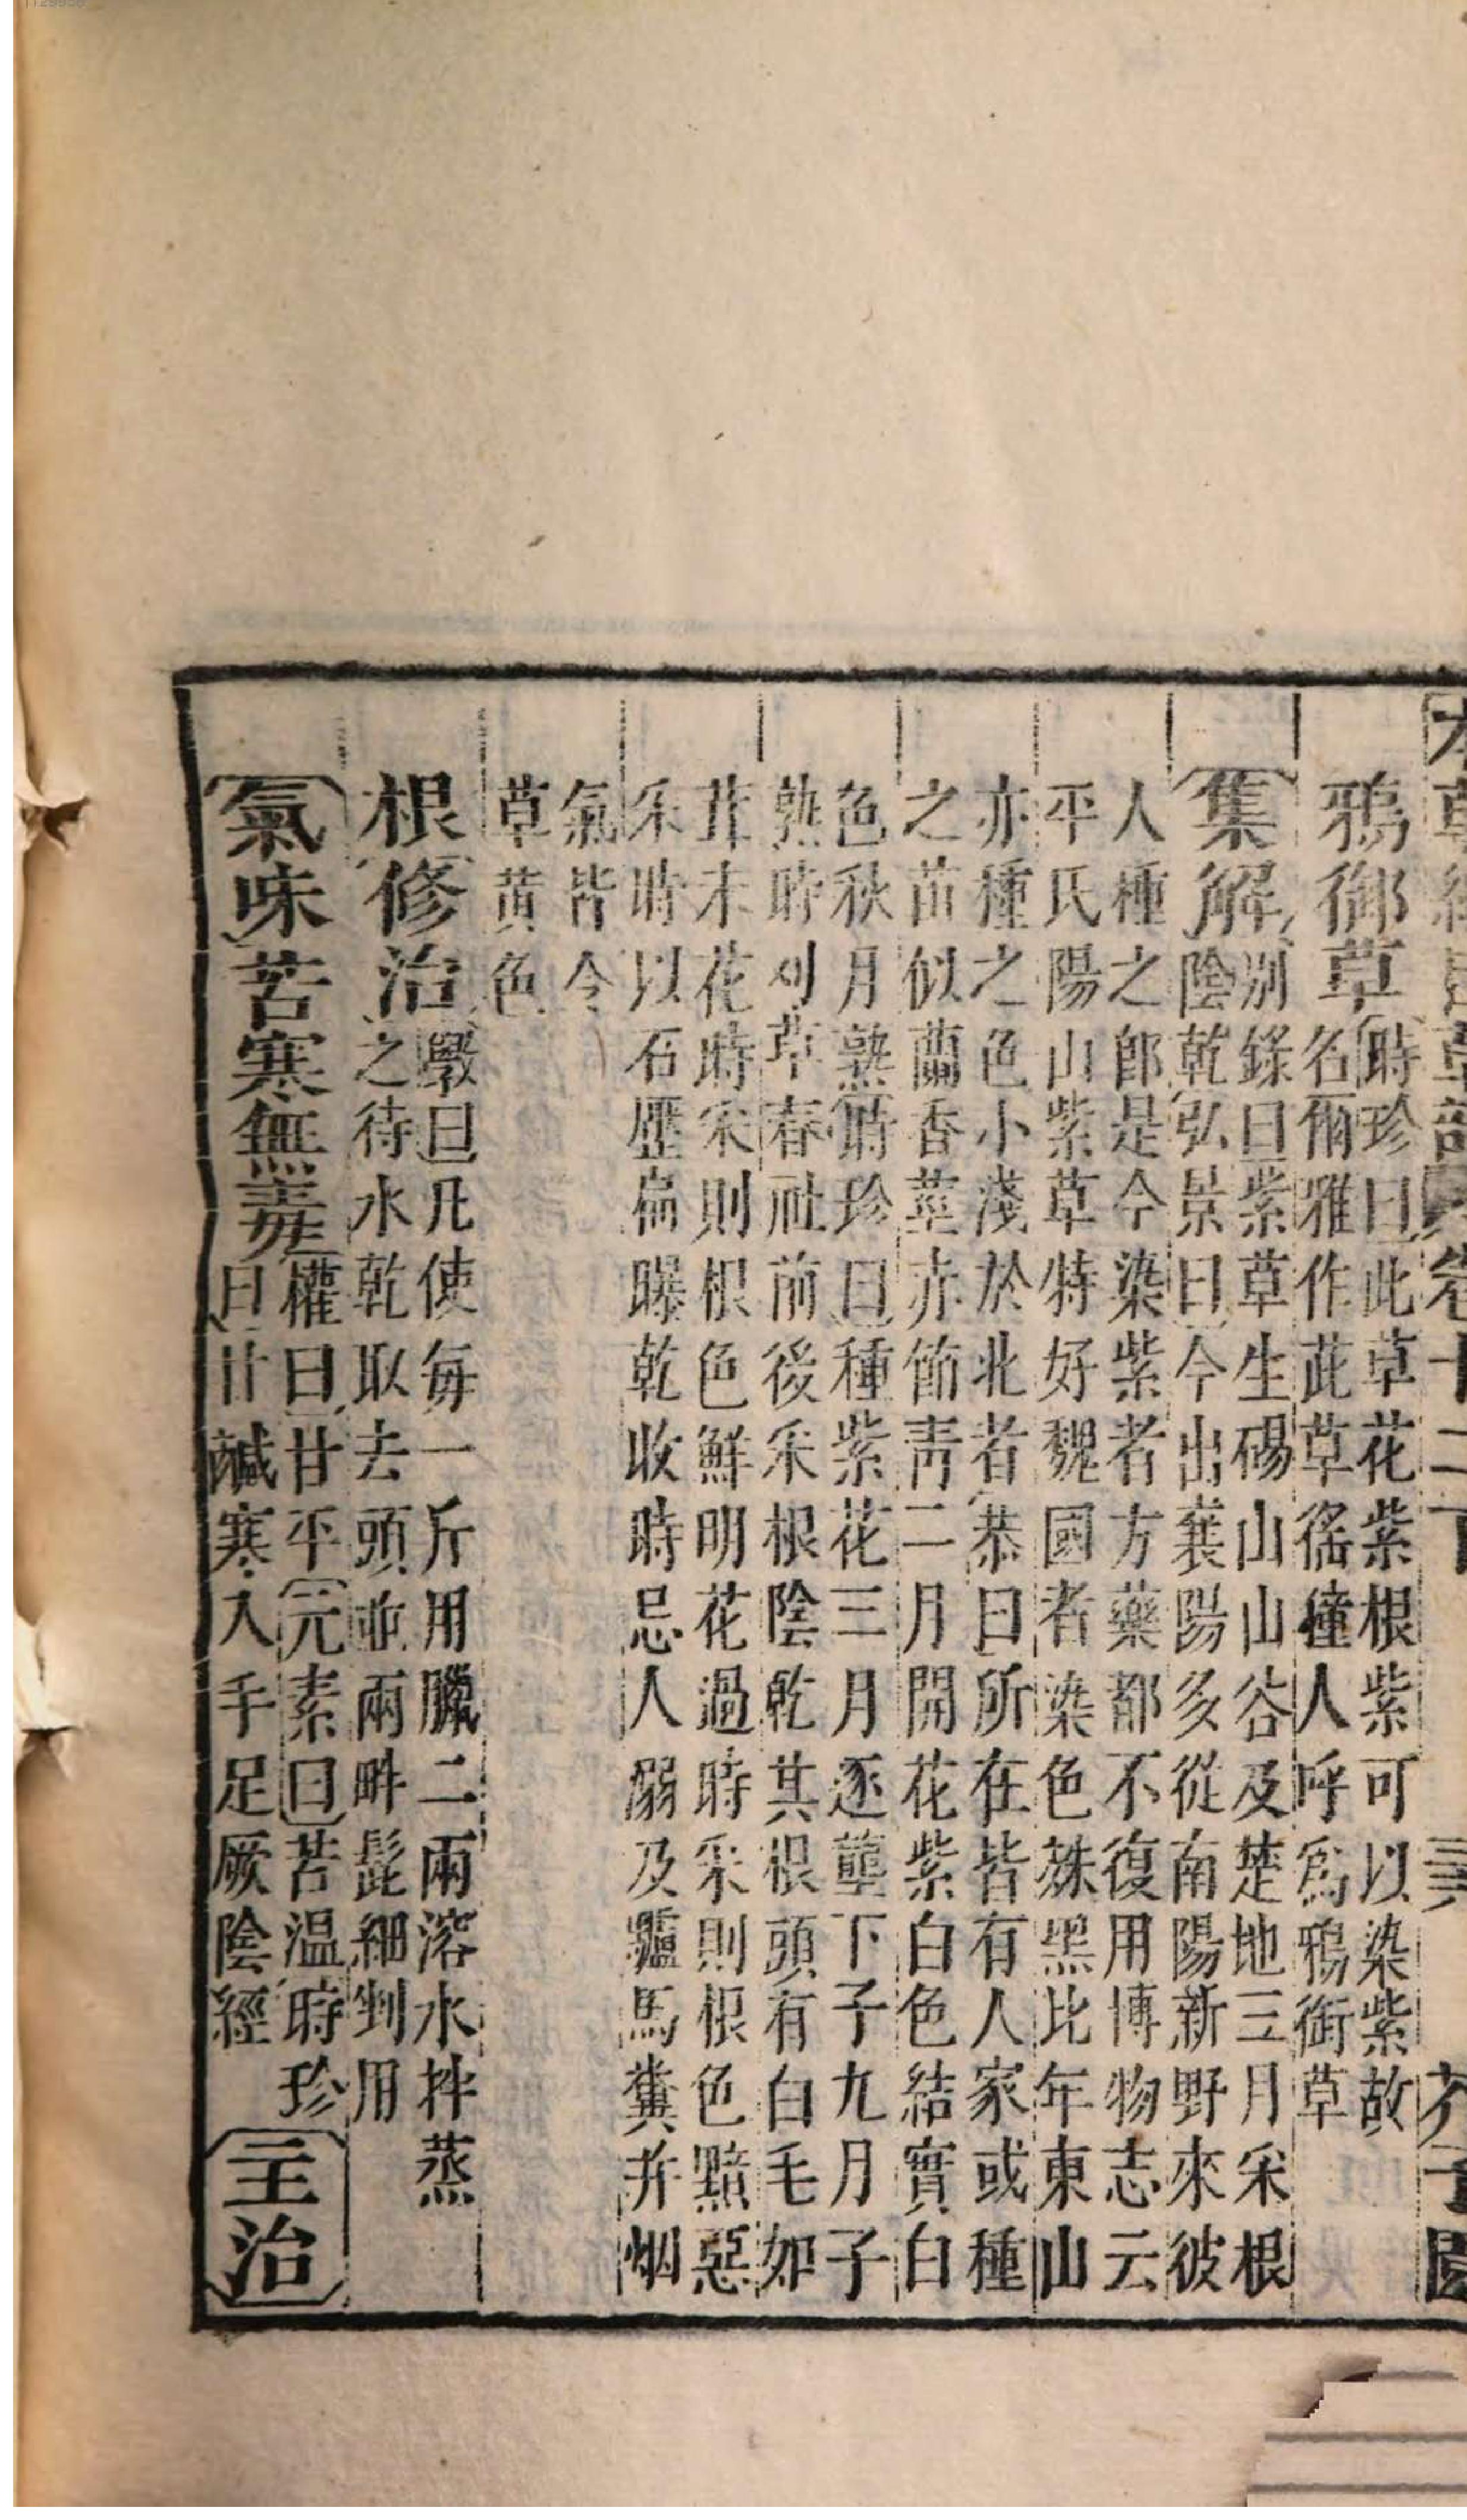 鴉御草〔時珍曰〕此草花紫根紫可以染紫故
名爾雅作茈草徭獞人呼爲鴉銜草
〔集解〕〔別錄曰〕紫草生碭山山谷及楚地三月采根
陰乾〔弘景曰〕今出襄陽多從南陽新野來彼
人種之郎是今染紫者方藥都不復用博物志云
平氏陽山紫草特好魏國者染色殊黑比年東山
亦種之色小淺於北者〔恭曰〕所在皆有人家或種
之苗似蘭香莖赤節靑二月開花紫白色結實白
色秋月熟〔時珍曰〕種紫花三月逐壟下子九月子
熟時刈草春社前後采根陰乾其根頭有白毛如
茸未花時采則根色鮮明花過時采則根色黯惡
采時以石壓扁曝乾收時忌人溺及驢馬糞并烟
氣皆令
草黃色
根〔修治〕〔斆曰〕凡使每一斤用臘二兩溶水拌蒸
之待水乾取去頭並兩畔髭細剉用
〔氣味〕苦寒無毒〔權曰〕甘平〔元素曰〕苦温時珍
曰甘鹹寒入手足厥陰經〔主治〕